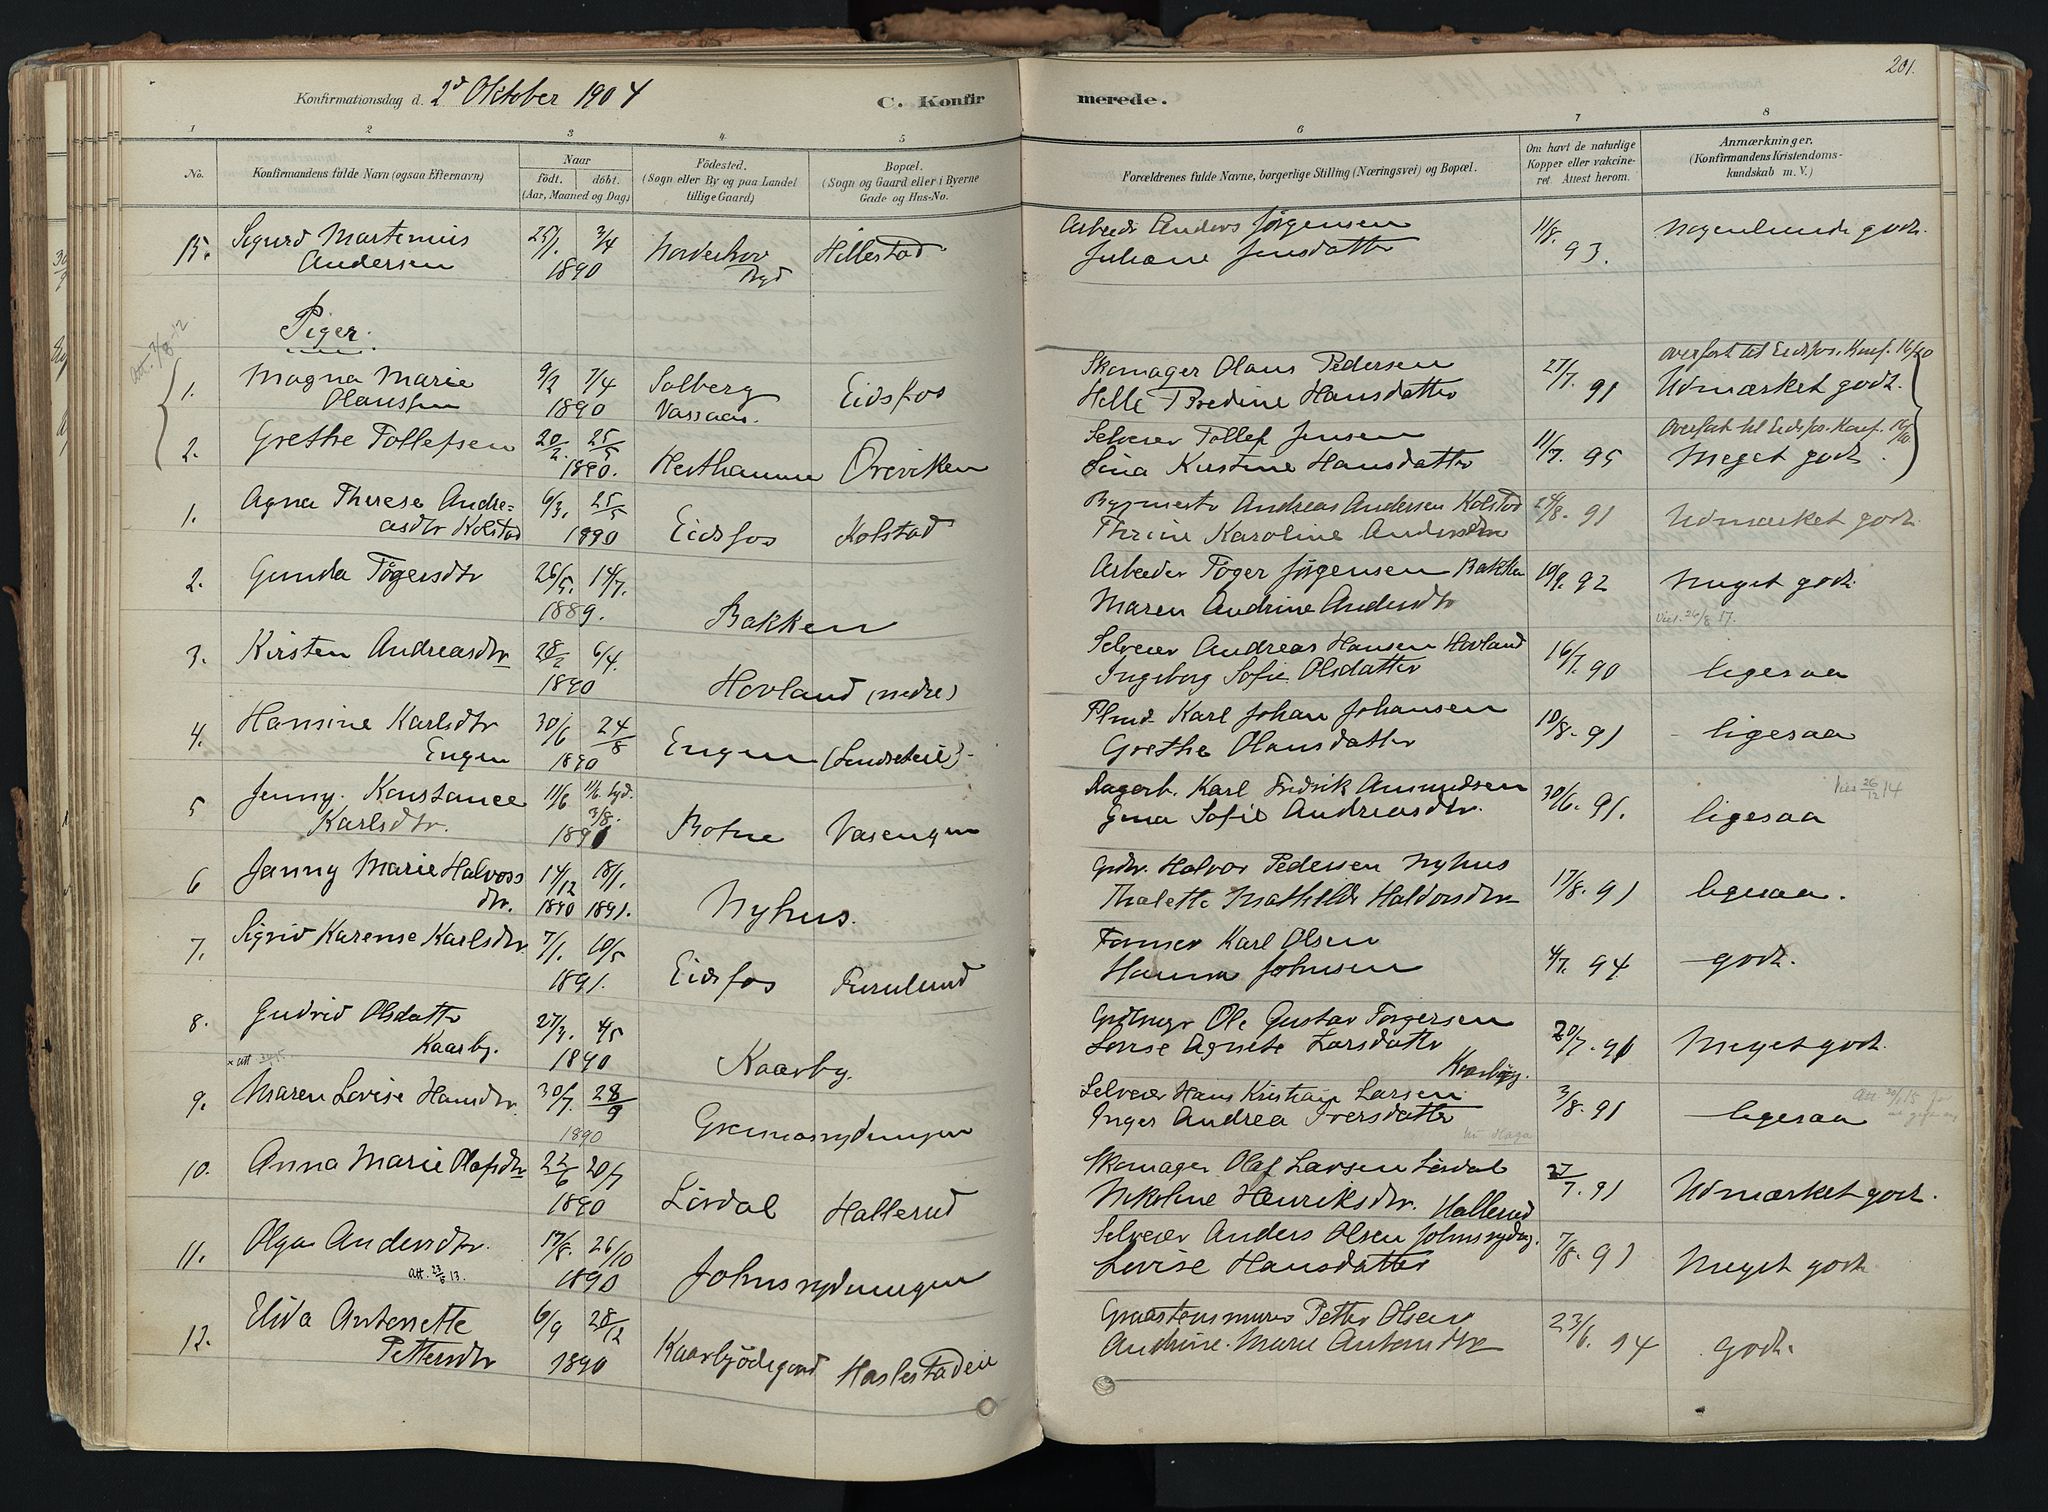 201.
Konfirmationsdag d. 2d Oktober 1904
C. Konfirmerede.
1 2 3 4 5 6 7 8
No.
Konfirmandens fulde Navn (ogsaa Efternavn)
Naar
födt. döbt.
(Aar, Maaned og Dag)
Födested.
(Sogn eller By og paa Landet
tillige Gaard)
Bopæl.
(Sogn og Gaard eller i Byerne
Gade og Hus-No.
Forældrenes fulde Navne, borgerlige Stilling (Næringsvei) og Bopæl.
Om havt de naturlige
Kopper eller vakcine-
ret. Attest herom.
Anmærkninger.
(Konfirmandens Kristendoms-
kundskab m. V.)
15. Sigurd Martinius Andersen 25/1. 3/4 1890 Norderhov Hillestad
Arbeid. Anders Jørgensen
Juliane Jensdatter
11/8. 93. Nogenlunde godt.
Piger.
1. Magna Marie Olaussen 9/2 7/4 1890 Solberg Vassaas. Eidsfos
Skomager Olaus Pedersen
Helle Bredine Hansdatter
27/7. 91
overført til Eidsfos. Konf. 16/10
Udmærket godt.
2. Grethe Tollefsen 20/2. 25/5 1890. Oreviken
Selveier Tollef Jensen
Lina Kirstine Hansdatter
11/7. 95
Overført til Eidsfos. Konf. 16/10
Meget godt.
1. Agna Therese Andreasdtr Kolstad 6/3. 25/5 1890 Eidsfos Kolstad
Andreas Andersen Kolstad
Karoline Andersdtr
24/8. 91 Udmærket godt.
2. Gunda Tögersdtr 26/5. 14/7. 1889. Bakken
Arbeider Töger Jørgensen Bakken
Maren Andrine Andersdtr
10/9. 92 Meget godt.
3. Kirsten Andreasdtr 28/2 6/4. 1890 Hovland (nedre)
Selveier Andreas Hansen Hovland
Ingeborg Sofie Olsdatter
16/7. 90 ligesaa
4. Hansine Karlsdtr Engen 30/6 24/8 1890 Engen
Karl Johan Johansen
Grethe Olausdatter
10/8. 91 ligesaa
5 Jenny Konstance Karlsdtr. 11/6 3/8. 1890 Botne Vasengen
Karl Fredrik Amundsen
Gina Sofie Andreasdtr.
30/6. 91. ligesaa
6 Jenny Marie Halvorsdtr. 14/12 1890 18/1. 1891. Nyhus.
Halvor Pedersen Nyhus
Thalette Mathilde Haldorsdtr
17/8. 91 ligesaa.
7. Sigrid Karense Karlsdtr 7/1. 10/5 1891. Eidsfos Furulund
Former Karl Olsen
Hanna Johnsen
4/7. 94 godt.
8. Gudrid Olsdatter Kaarby. 27/3. 4/5 1890 Kaarby.
Ole Gustav Torgersen
Lovise Agnete Larsdatter Kaarby.
20/7. 91 Meget godt.
9. Maren Lovise Hansdtr. 30/7. 28/9 1890
Selveier Hans Kristian Larsen
Inger Andrea Iversdatter
3/8. 91 ligesaa
10. Anna Marie Olafsdtr 22/6 20/7 1890 Lördal Hallerud
Skomager Olaf Larsen Lördal
Nikoline Henriksdtr. Hallerud
27/7. 91 Udmærket godt.
11. Olga Andersdtr. 17/8. 26/10 1890 Johnsrydningen
Selveier Anders Olsen Johnsrydng.
Lovise Hansdatter
7/8. 91 Meget godt
12. Att. 23/8 13. Elida Antonette Pettersdtr 6/9 28/12 1890 Kaarbyödegaard Haslestadeie
Graastensmurer Petter Olsen
Andrine Marie Antonsdtr
23/6. 94 godt.